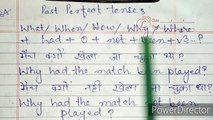 Past Perfect Tense:
What/When/How/Why/Where
+ had + O + not + been + v3 ...?
मैच क्यों खेला जा चुका था?
Why had the match been played?
मैच क्यों नहीं खेला जा चुका था?
Why had the match not been
played?